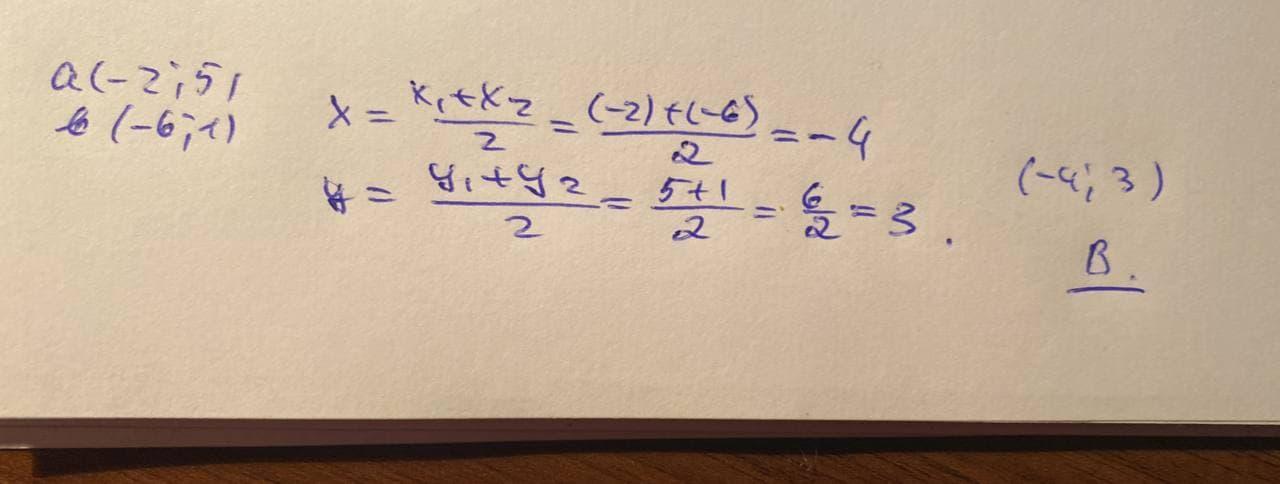 a(-2;5)
в (-6;1)
x = x₁+x₂/2 = (-2)+(-6)/2 = -4
y = y₁+y₂/2 = 5+1/2 = 6/2 = 3.
(-4; 3)
B.